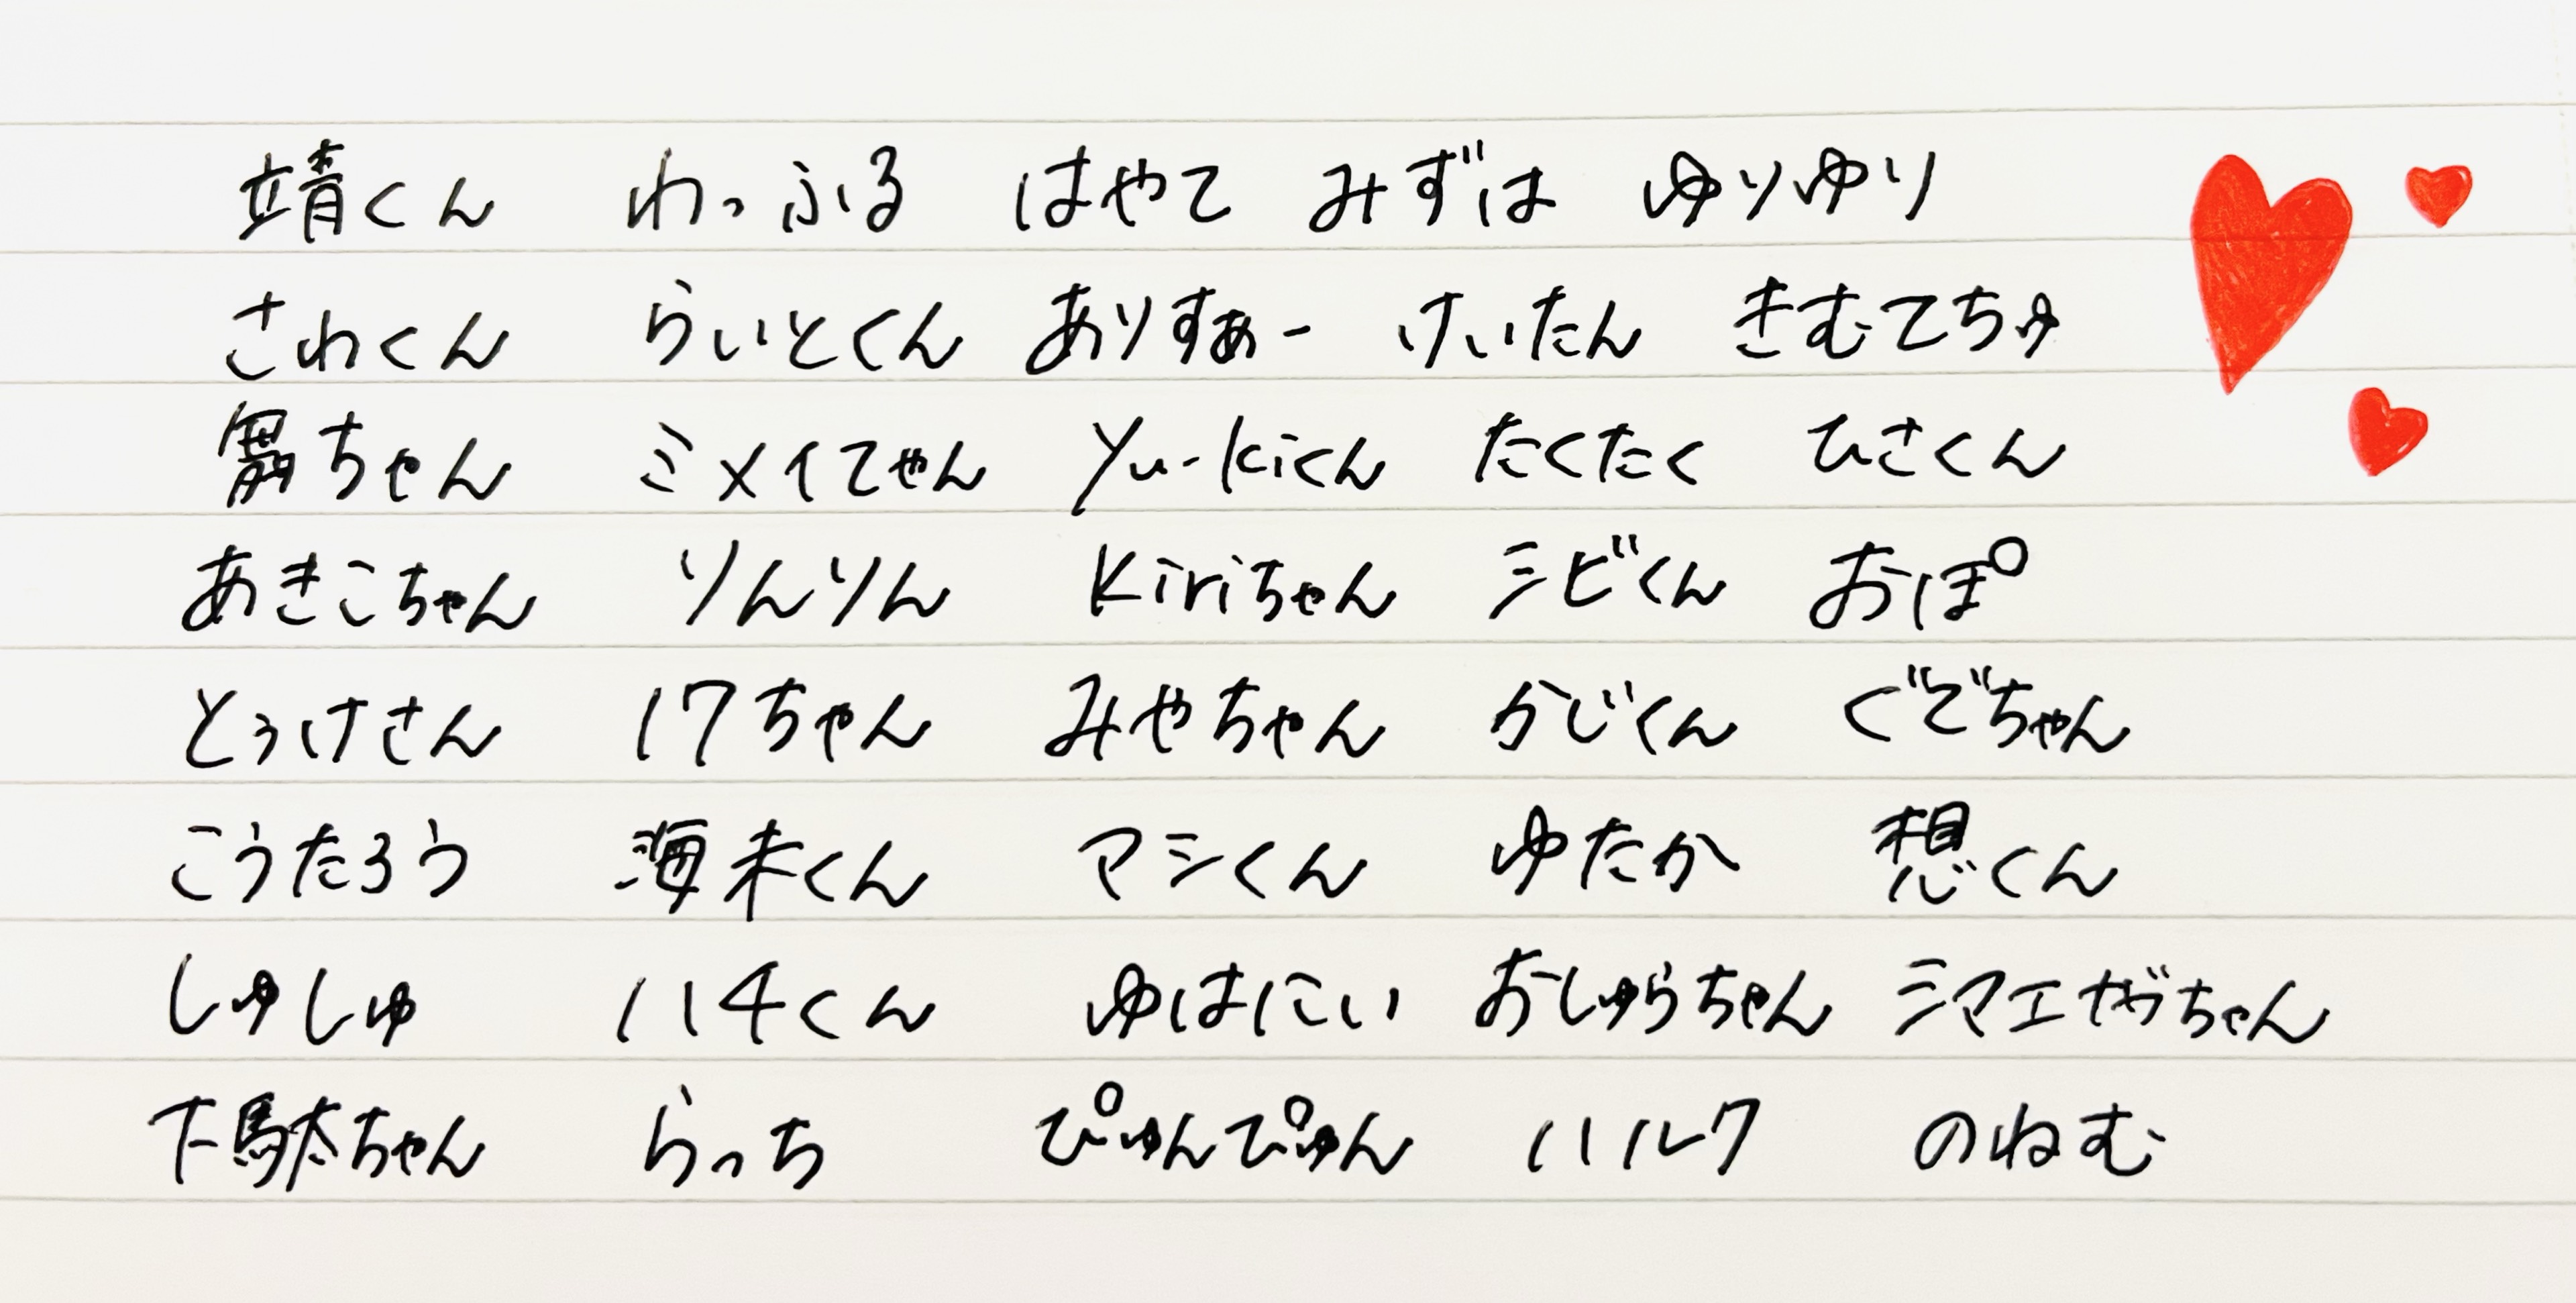 靖くん わっふる はやて みずは ゆりゆり
さわくん らいとくん ありすぁー けいたん きむてちゅ
ちゃん ミメイてゃん Yu-kiくん たくたく ひさくん
あきこちゃん りんりん Kiriちゃん シビくん おぽ
とぅけさん 17ちゃん みやちゃん かじくん ぐでちゃん
こうたろう 海未くん マシくん ゆたか 想くん
しゅしゅ ハチくん ゆはにい おしゅらちゃん シマエナガちゃん
下駄ちゃん らっち ぴゅんぴゅん ハルク のねむ